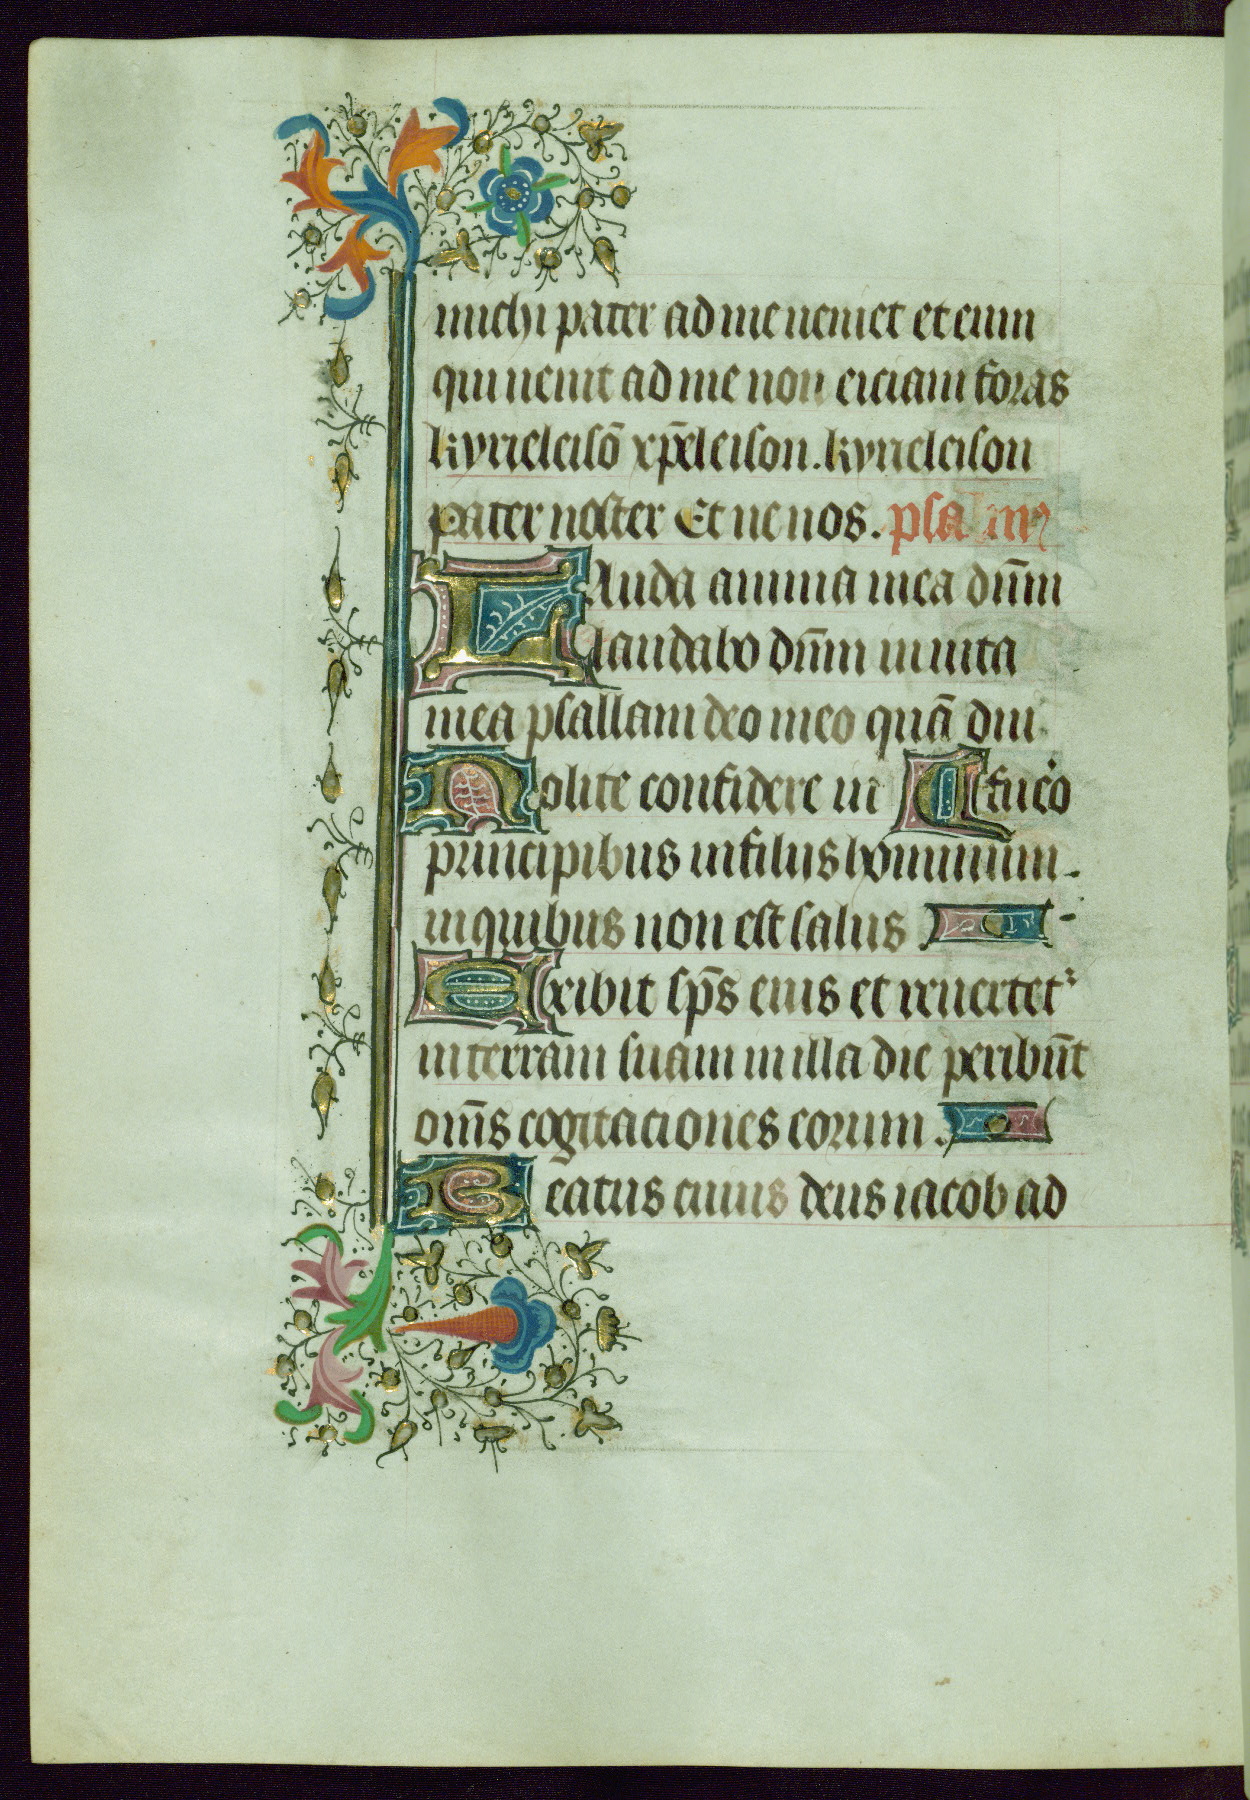 michi pater ad me veniet et eum
qui venit ad me non eiciam foras
kyrieleisō xp̄eleison. kyrieleison
pater noster Et ne nos. psalmꝰ
Lauda anima mea dn̄m
laudabo dn̄m in vita
mea psallam deo meo quā diu
Nolite confidere in fuēo
principibus in filiis hominum.
in quibus non est salus
Exibit sp̄s eius et revertet᷑
in terram suam in illa die peribūt
om̄s cogitaciones eorum.
Beatus cuius deus iacob ad